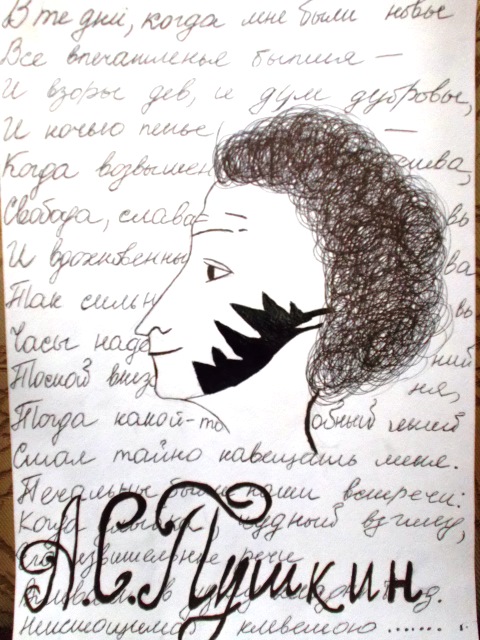 В те дни, когда мне были новы
Все впечатленья бытия —
И взоры дев, и дум дубровы,
И ночью пенье —
Когда возвышен ства,
Свобода, слава вь
И вдохновенны ва
Так сильн вь
Часы наде ний
Тоской внез ня,
Тогда какой-то обный гений
Стал тайно навещать меня.
Печальны были наши встречи:
Когда чудный взгляд,
речи
в
Неистощимой клеветою ......
А.С.Пушкин